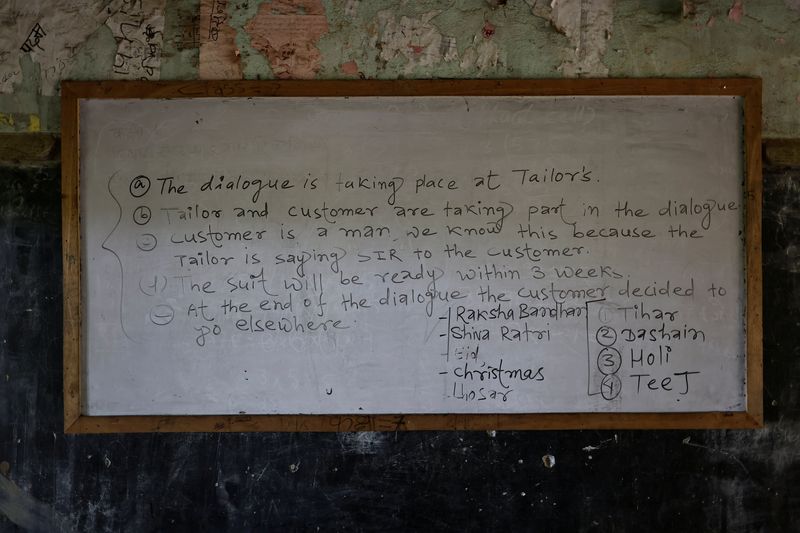 class = 7
ⓐ The dialogue is taking place at Tailor's.
ⓑ Tailor and customer are taking part in the dialogue.
customer is a man, we know this because the
Tailor is saying SIR to the customer.
The suit will be ready within 3 weeks.
At the end of the dialogue the customer decided to
go elsewhere.
- Raksha Bandhan
- Shiva Ratri
- Eid
- christmas
- Lhosar
① Tihar
② Dashain
③ Holi
④ TeeJ
कक्षा = 7